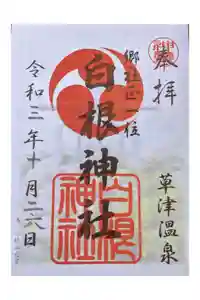 奉拝
草津温泉
郷社正一位
白根神社
白根神社
令和三年十月二六日